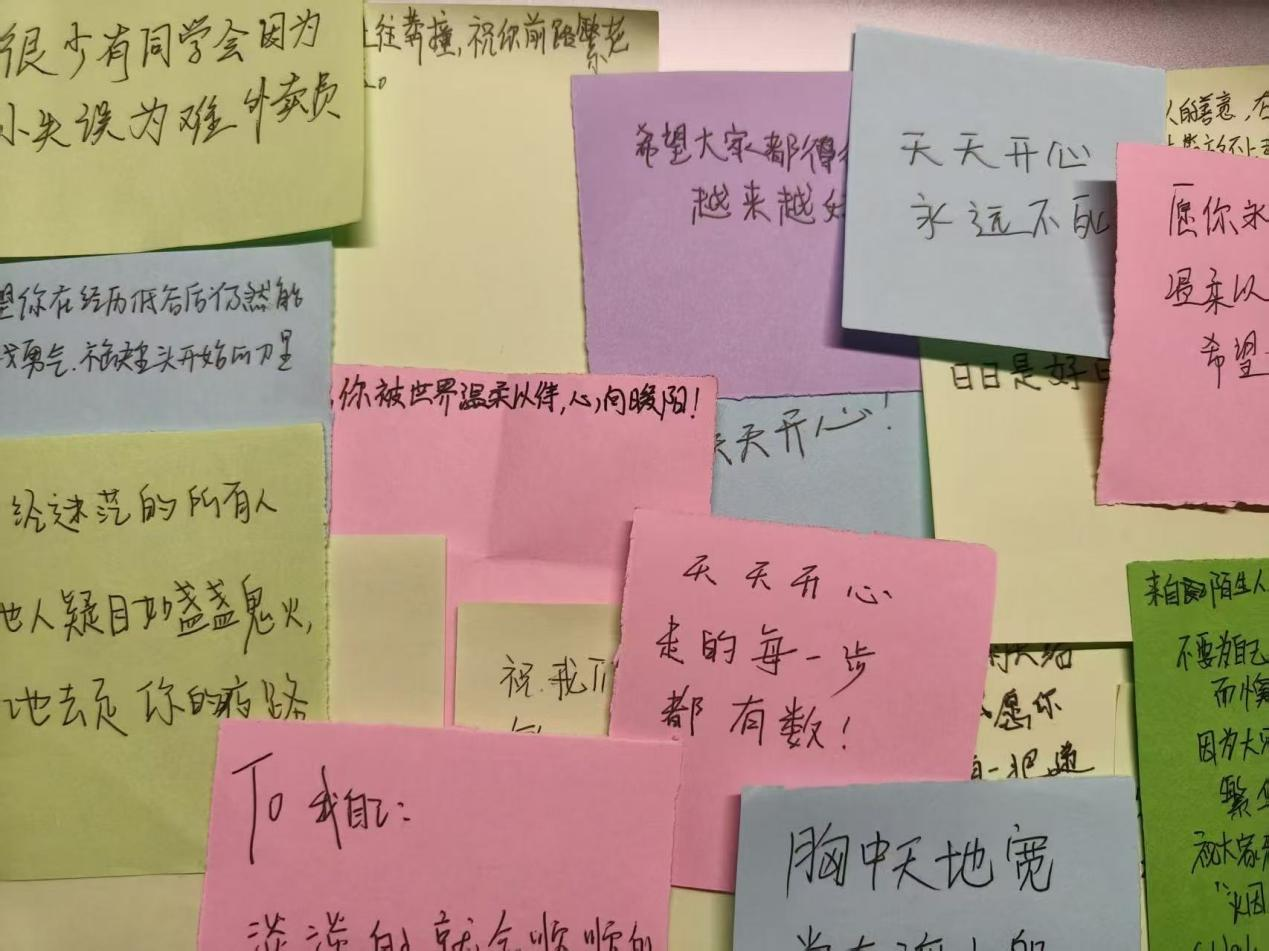 很少有同学会因为
小失误为难外卖员
往莽撞,祝你前路繁花
希望大家都得
越来越好
天天开心
永远不死
人的善意,在
愿你永
温柔以
希望
望你在经历低谷后仍然能
找勇气.
头开始的力量
你被世界温柔以待,心向暖阳!
天天开心!
日日是好日
给迷茫的所有人
他人疑目如盏盏鬼火,
地去走你的夜路
祝我们
天天开心
走的每一步
都有数!
愿你
一把
来自 陌生人
不要为自己
而
因为大
繁华
祝大家
“烟
To 我自己:
淡淡的就会顺顺的
胸中天地宽